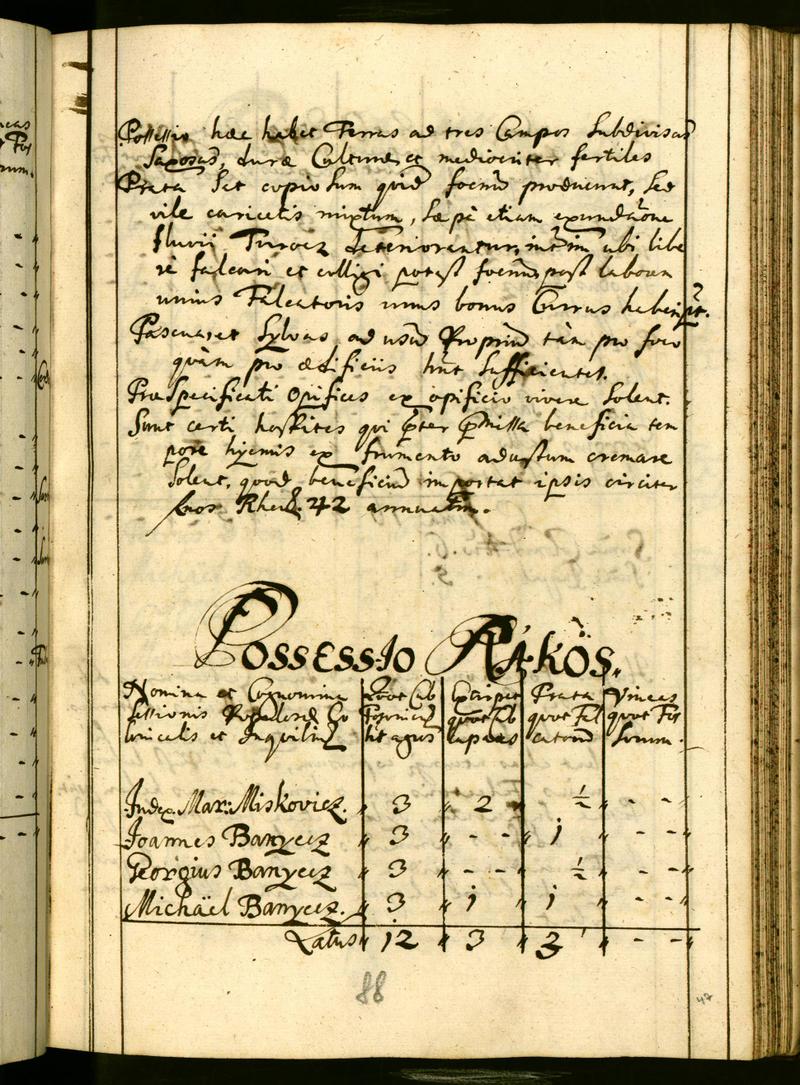 Possessio haec habet Terras ad tres Campos Subdivisas
Saxosas, durae Culturae, et mediocriter fertiles
Prata Set copiosum quid foenum producunt, sed
vile caricetis mixtum, Saepe etiam exundaõne
fluvii Turocz deteriorantur, ubi libe
re falcari et colligi potest foenum post laborem
unius Falcatoris unus bonus Currus haberi pot.
Pascua, et Sylvas ad usũ Propriũ tàm pro foco
quàm pro aedificiis hñt Sufficientes.
Praespecificati Opifices ex opificio vivere Solent.
Sunt certi hospites qui p̃ter p̃missa beneficia tem
pore hyemis ex frumento adustum cremare
Solent, quod beneficiũ importat ipsis circiter
fnos Rhen. 42 annuatim.
Possessio Rákös.
Nomina et Cognomina
sessionis Possessores Co
lonicalis et Inquilin
Quot Cub
Posonien
sit agris
Extirpat
quot Cub
capaces
Prata
quot Fal
catorum
Vineas
quot Fos
sorum.
Iudex Mar: Miskovicz. " 3 " 2 " ½ " - - "
Joannes Banyecz " 3 " - - " 1 " - - "
Georgius Banyecz " 3 " - - " ½ " - - "
Michäel Banyecz. " 3 " 1 " 1 " - - "
Latus " 12 " 3 " 3 " - - "
88
47